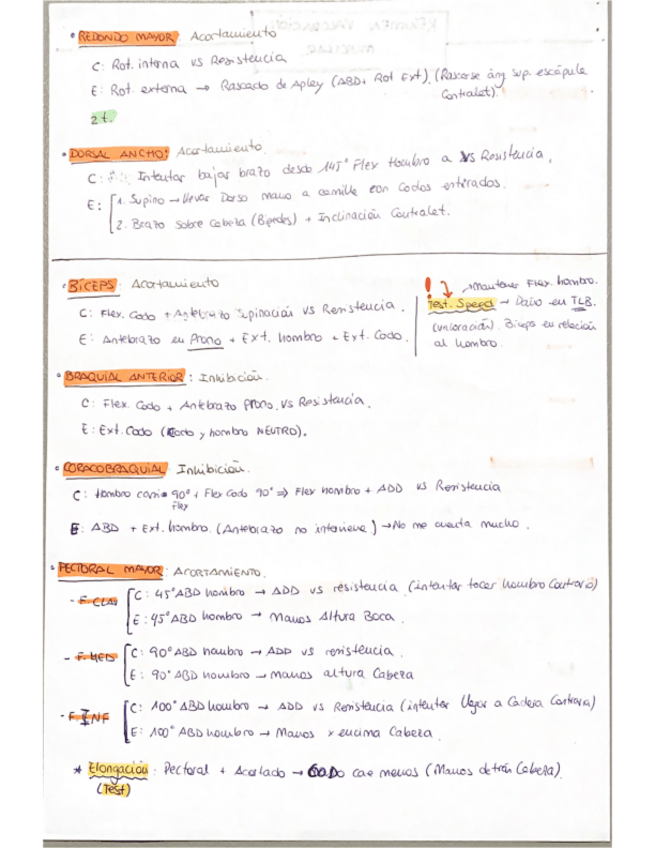 • REDONDO MAYOR Acortamiento
C: Rot. interna vs Resistencia
E: Rot. externa → Rascado de Apley (ABD + Rot Ext). (Rascarse áng sup. escápula
Contralat).
2 t.
• DORSAL ANCHO: Acortamiento.
C: Intentar bajar brazo desde 145° Flex Hombro a vs Resistencia.
E: 1. Supino → llevar Dorso mano a camilla con codos estirados.
2. Brazo sobre Cabeza (Bipedes) + Inclinación Contralat.
• BÍCEPS. Acortamiento
C: Flex. Codo + Antebrazo Supinación vs Resistencia.
E: Antebrazo en Prono + Ext. hombro + Ext. Codo.
! → Mantener Flex. hombro.
Test. Speed → Daño en TLB.
(valoración). Bíceps en relación
al hombro.
• BRAQUIAL ANTERIOR: Inhibición.
C: Flex. Codo + Antebrazo Prono. vs Resistencia.
E: Ext. Codo (Codo y hombro NEUTRO).
• CORACOBRAQUIAL Inhibición.
C: Hombro 90° + Flex Codo 90° ⇒ Flex hombro + ADD vs Resistencia
Flex
E: ABD + Ext. hombro. (Antebrazo no interviene) → No me cuenta mucho.
• PECTORAL MAYOR: ACORTAMIENTO.
- F. CLAV C: 45° ABD hombro → ADD vs resistencia (intentar tocar hombro Contrario)
E: 45° ABD hombro → Manos Altura Boca.
- F. MED C: 90° ABD hombro → ADD vs resistencia.
E: 90° ABD hombro → Manos altura Cabeza
- F. INF C: 100° ABD hombro → ADD vs Resistencia (intentar llegar a Cadera Contraria)
E: 100° ABD hombro → Manos x encima Cabeza.
* Elongación: Pectoral + Acortado → CODO cae menos (Manos detrás Cabeza).
(Test)